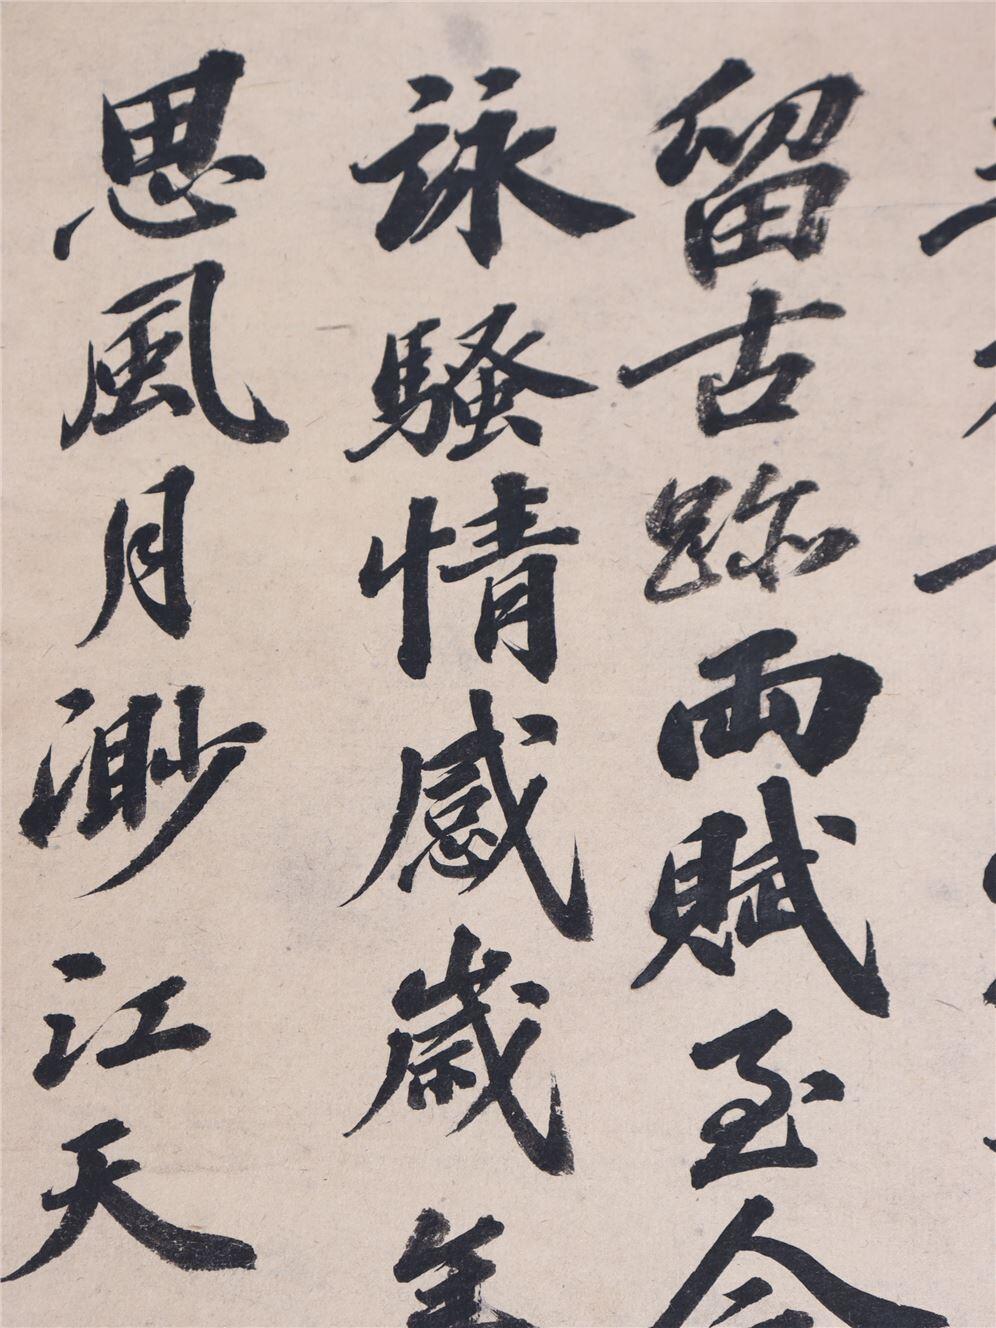 留古跡兩賦至今
詠騷情感歲年
思風月渺江天